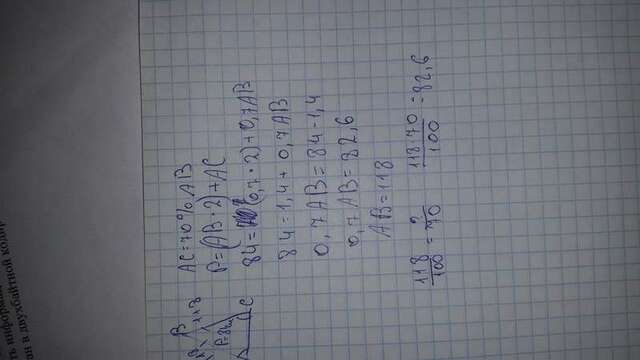 AC=70% AB
P=(AB·2)+AC
84=(0,7·2)+0,7AB
84=1,4+0,7AB
0,7AB=84-1,4
0,7AB=82,6
AB=118
118/100=?/70 118·70/100=82,6
B
118
C
ть информац
ан в двухбайтной кодир